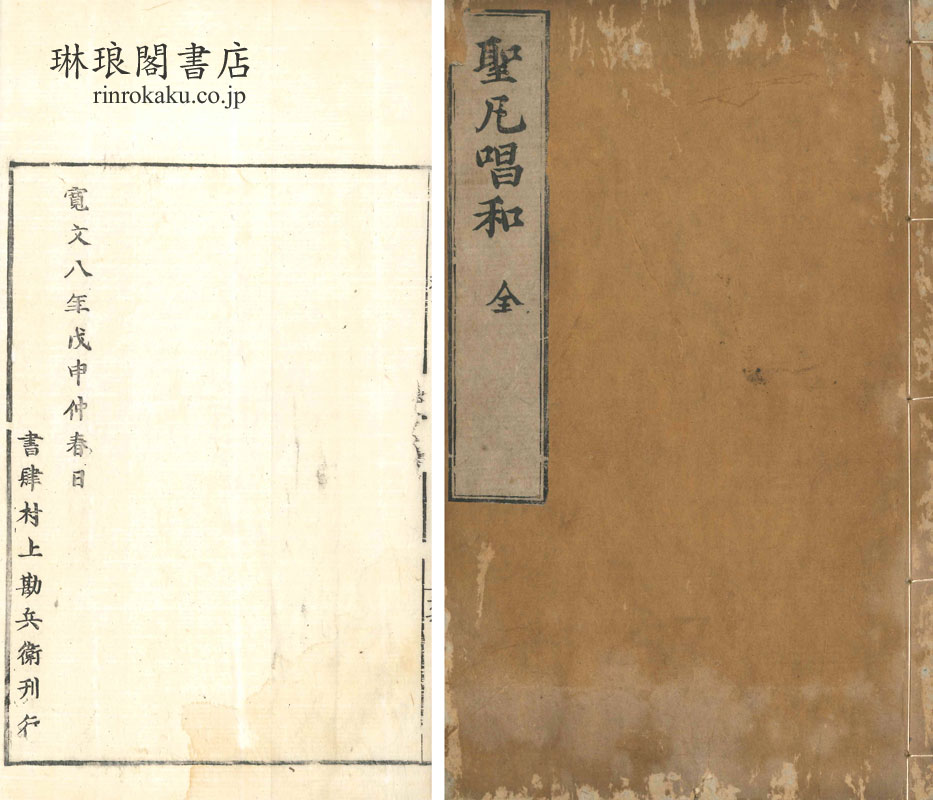 琳琅閣書店
rinrokaku.co.jp
聖凡唱和
全
寛文八年戊申仲春日
書肆村上勘兵衛刊行